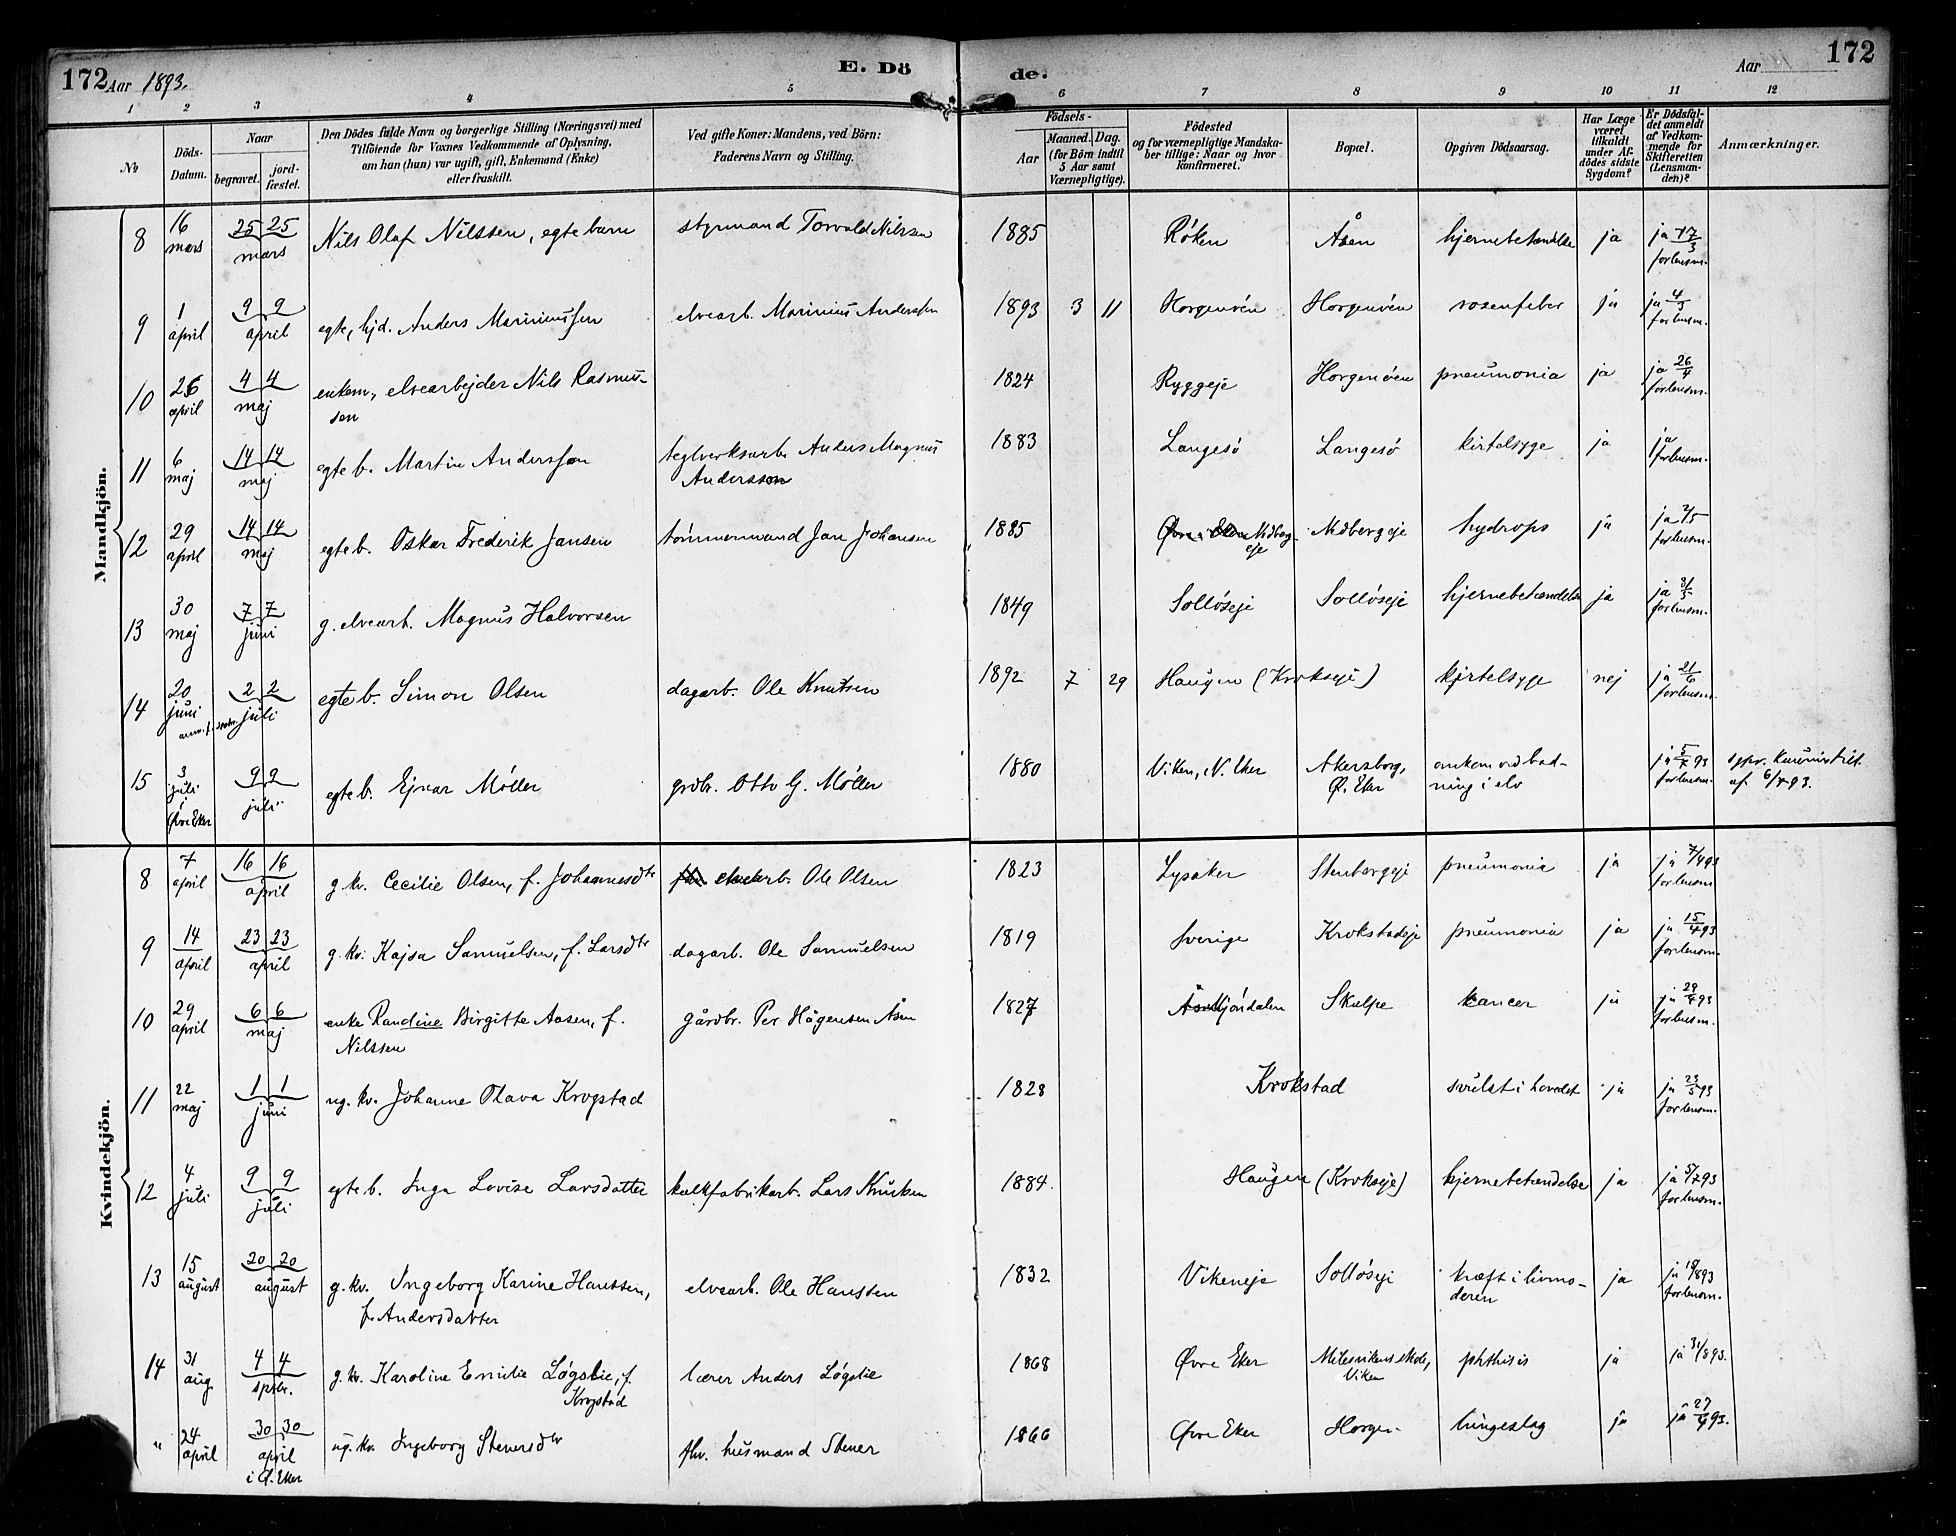 172 Aar 1893.
E. Döde.
Aar 172
1 2 3 4 5 6 7 8 9 10 11 12
No
Döds-Datum.
Naar
begravet.
jord-fæstet.
Den Dödes fulde Navn og borgerlige Stilling (Næringsvei) med
Tilföiende for Voxnes Vedkommende af Oplysning,
om han (hun) var ugift, gift, Enkemand (Enke)
eller fraskilt.
Ved gifte Koner: Mandens, ved Börn:
Faderens Navn og Stilling.
Födsels-
Aar
Maaned. Dag.
(for Börn indtil
5 Aar samt
Værnepligtige).
Födested
og for værnepligtige Mandska-
ber tillige: Naar og hvor
konfirmeret.
Bopæl.
Opgiven Dödsaarsag.
Har Læge
været
tilkaldt
under Af-
dödes sidste
Sygdom?
Er Dödsfal-
det anmeldt
af Vedkom-
mende for
Skifteretten
(Lensman-
den)?
Anmærkninger.
Mandkjön.
8 16 mars 25 25 mars Nils Olaf Nilssen, egte barn styrmand Torvald Nilssen 1885 Röken Åsen hjernebetændelse ja ja 17/3 for lensm.
9 1 april 9 9 april egte, hjd. Anders Mariniussen elvearb. Marinius Anderssen 1893 3 11 Horgenöen Horgenöen rosenfeber ja ja 4/3 for lensm.
10 26 april 4 4 maj enkem., elvearbejder Nils Rasmus-
sen 1824 Ryggeje Horgenöen pneumonia ja ja 26/4 for lensm.
11 6 maj 14 14 maj egte b. Martin Anderssen teglverksarb. Anders Magnus
Andersson 1883 Langesö Langesö kirtelsyge ja ja for lensm.
12 29 april 14 14 maj egte b. Oskar Frederik Jansen tömmermand Jan Johansen 1885 Midberg-
eje Midbergeje hydrops ja ja 2/5 for lensm.
13 30 maj 7 7 juni g. elvearb. Magnus Halvorsen 1849 Sollöseje Sollöseje hjernebetændelse ja ja 31/5 for lensm.
14 20 juni 2 2 juli egte b. Simon Olsen dagarb. Ole Knutsen 1892 7 29 Haugen (Krokseje) kjertelsyge nej ja 21/6 for lensm.
15 3 juli Övre Eker 9 9 juli egte b. Ejnar Möller grdbr. Otto G. Möller 1880 Viken, N. Eker Akersborg,
Ö. Eker omkom ved bad-
ning i elv ja 5/7 93 for lensm. af 6/7 93.
Kvindekjön.
8 7 april 16 16 april g. kv. Cecilie Olsen, f. Johannesdtr elvearb. Ole Olsen 1823 Lysaker Stenbergeje pneumonia ja ja 7/4 93 for lensm.
9 14 april 23 23 april g. kv. Kajsa Samuelsen, f. Larsdtr dagarb. Ole Samuelsen 1819 Sverige Krokstadeje pneumonia ja ja 15/4 93 for lensm.
10 29 april 6 6 maj enke Randine Birgitte Aasen, f.
Nilssen gårdbr. Per Hågensen Åsen 1827 Mjöndalen Skalpe kancer ja ja 29/4 93 for lensm.
11 22 maj 1 1 juni ug. kv. Johanne Olava Krogstad 1828 Krokstad svulst i hovedet ja ja 23/5 93 for lensm.
12 4 juli 9 9 juli egte b. Inga Lovise Larsdatter kalkfabrikarb. Lars Knutsen 1884 Haugen (Krokseje) hjernebetændelse ja ja 5/7 93 for lensm.
13 15 august 20 20 august g. kv. Ingeborg Karine Hanssen,
f. Andersdatter elvearb. Ole Hanssen 1832 Vikeneje Sollöseje kræft i livmo-
deren ja ja 18/8 93 for lensm.
14 31 aug. 4 4 sptbr. g. kv. Karoline Emilie Løgslie, f.
Krogstad lærer Anders Løgslie 1868 Øvre Eker Milesvikens skole,
Viken phthisis ja ja 31/8 93.
" 24 april 30 30 april i Ø. Eker ug. kv. Ingeborg Stenersdtr fhv. husmand Stener 1866 Øvre Eker Horgen lungeslag ja ja 27/4 93.